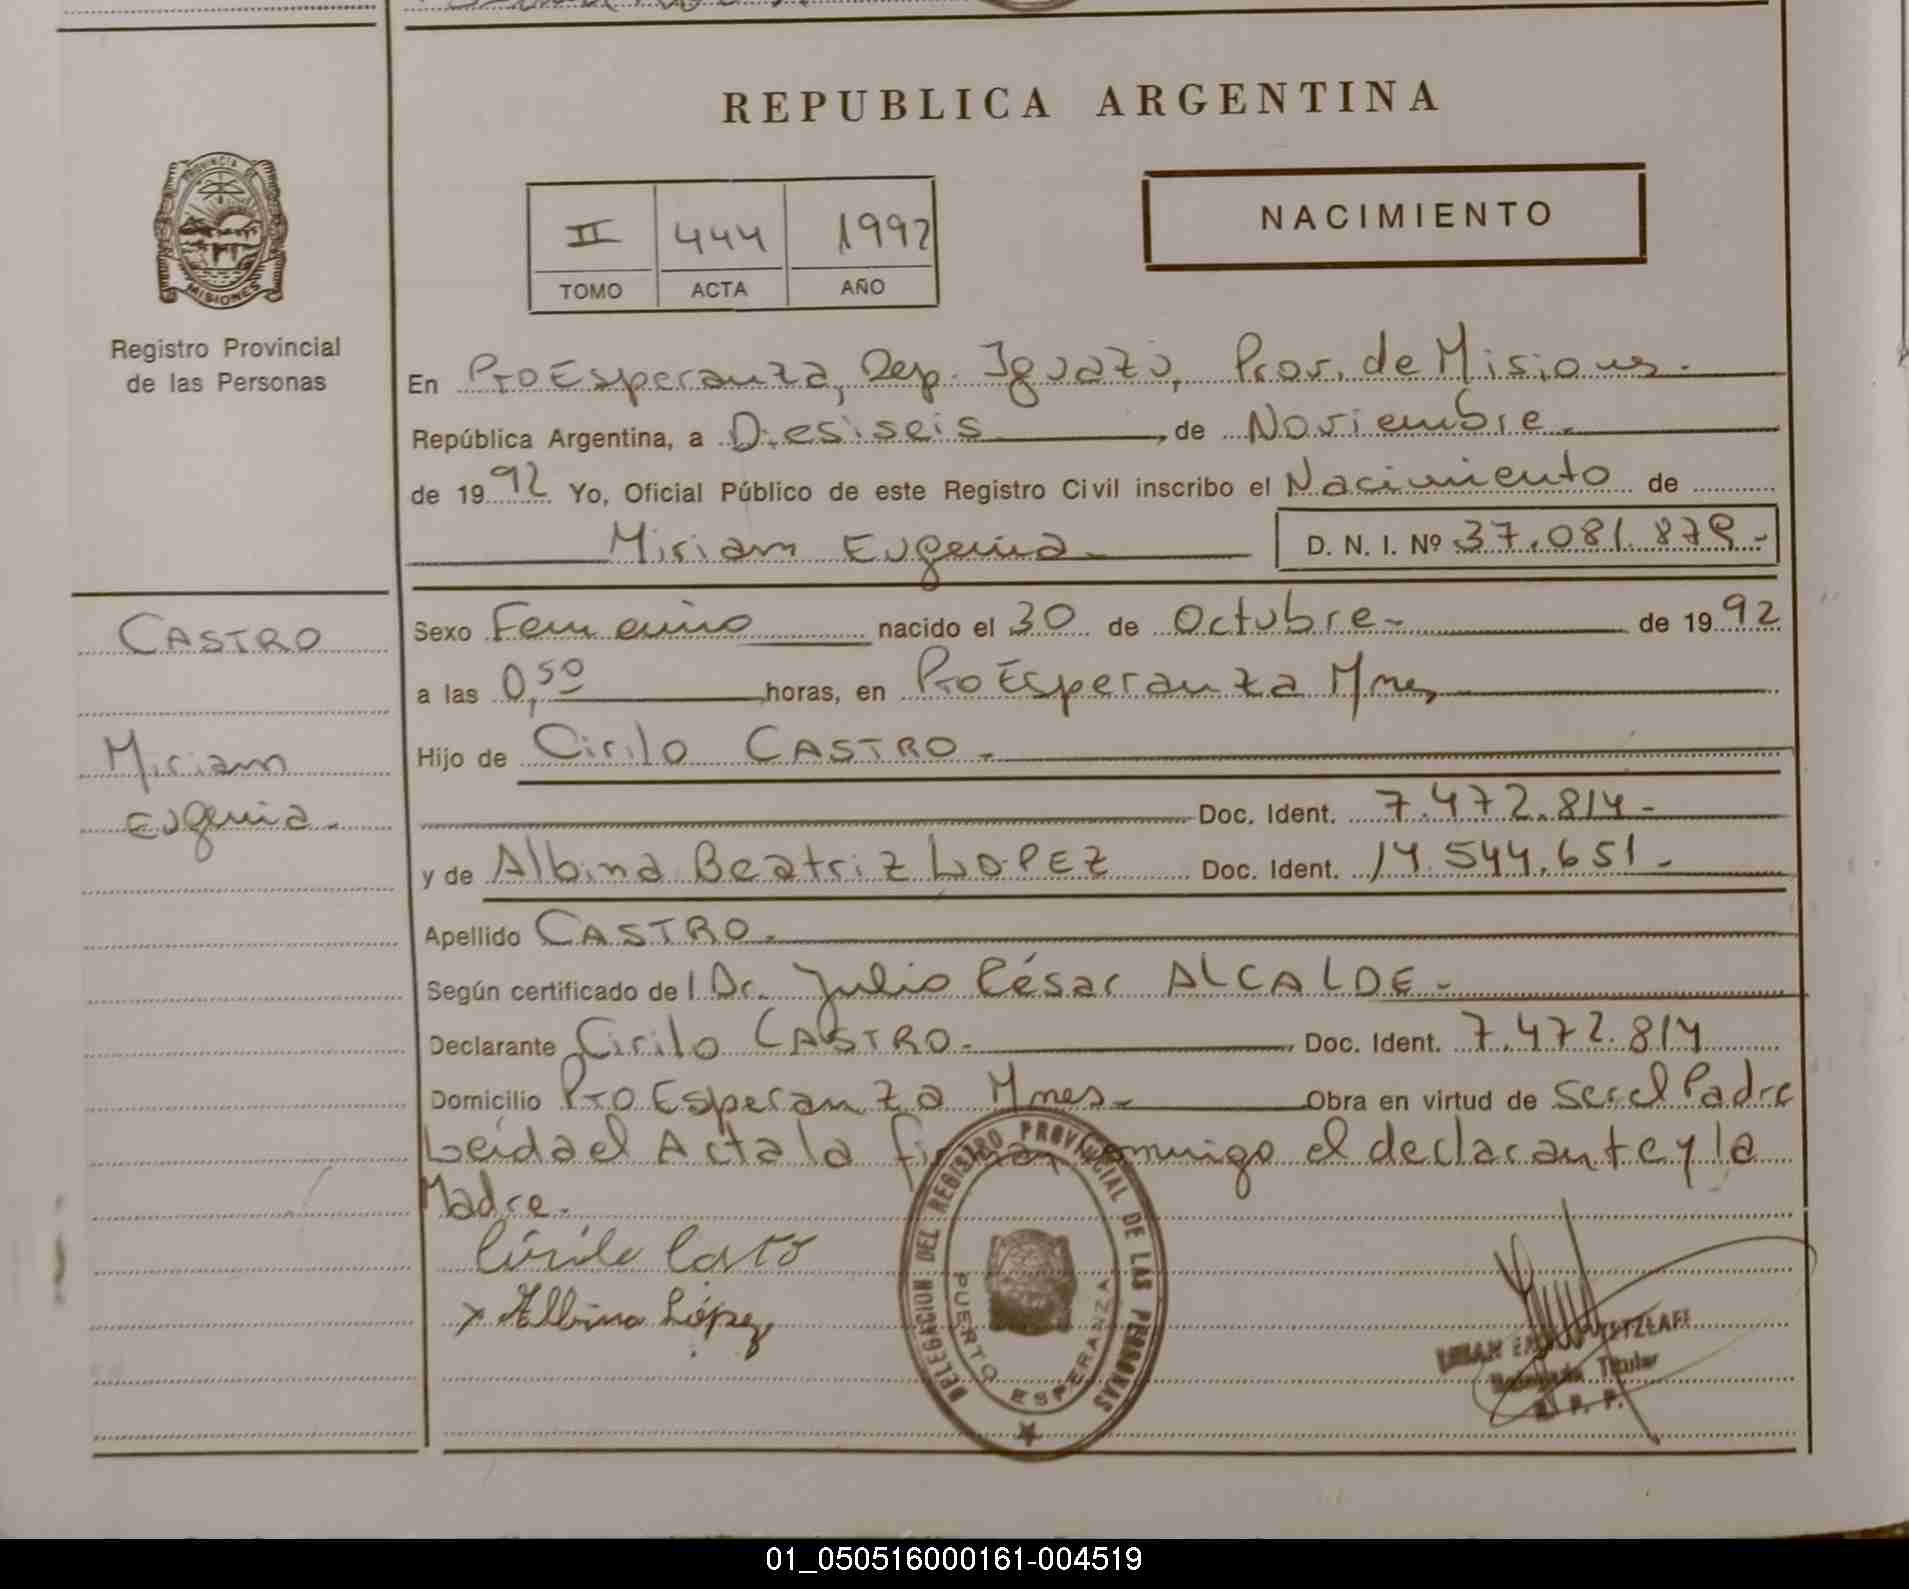 REPUBLICA ARGENTINA
PROVINCIA DE MISIONES
Registro Provincial
de las Personas
II 444 1992
TOMO ACTA AÑO
NACIMIENTO
En Pto Esperanza, Dep. Iguazú, Prov. de Misiones.-
República Argentina, a Diesiseis, de Noviembre.
de 1992 Yo, Oficial Público de este Registro Civil inscribo el Nacimiento de
Miriam Eugenia.- D. N. I. Nº 37.081.879.-
CASTRO
Miriam
Eugenia.-
Sexo Femenino nacido el 30 de Octubre.- de 1992
a las 0,50 horas, en Pto Esperanza Mnes,
Hijo de Cirilo CASTRO.-
Doc. Ident. 7.472.814.-
y de Albina Beatriz LOPEZ Doc. Ident. 14.544.651.-
Apellido CASTRO.
Según certificado del Dr. Julio César ALCALDE.-
Declarante Cirilo CASTRO.- Doc. Ident. 7.472.814
Domicilio Pto Esperanza Mnes.- Obra en virtud de ser el Padre
Leída el Acta la firman conmigo el declarante y la
Madre.-
Cirilo Castro
x Albina López
DELEGACION DEL REGISTRO PROVINCIAL DE LAS PERSONAS
PUERTO ESPERANZA
Titular
R. P. P.
01_050516000161-004519